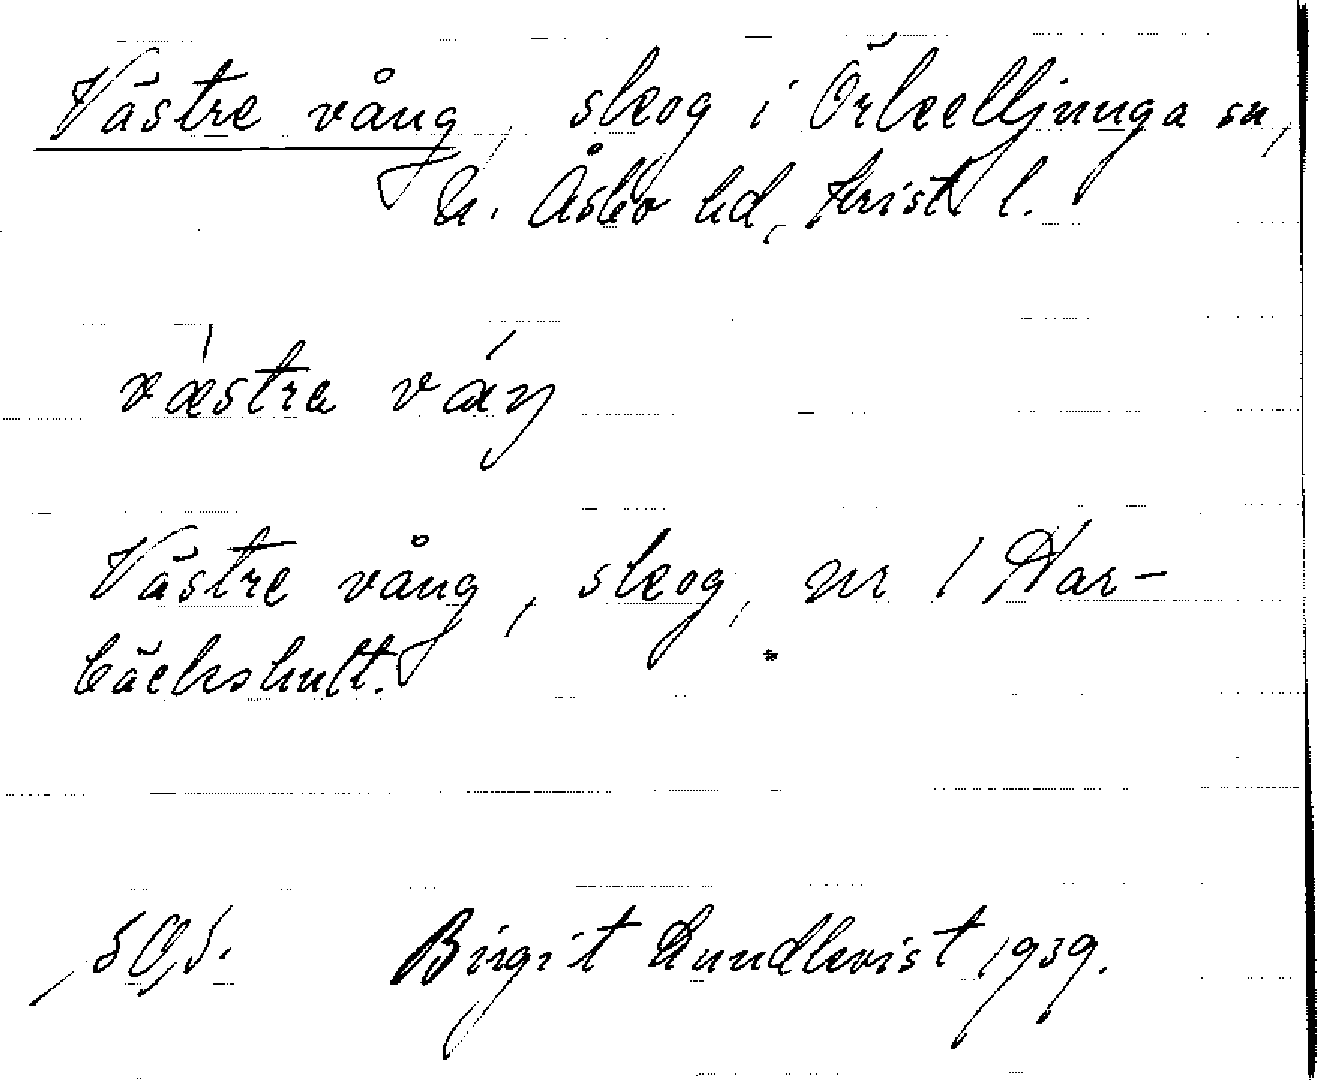 Västre vång, skog i Örkelljunga sn,
N. Åsbo hd, Krist. l.
västre váŋ
Västre vång, skog, nr 1 Har-
bäckshult.
Birgit Lundkvist 1939.